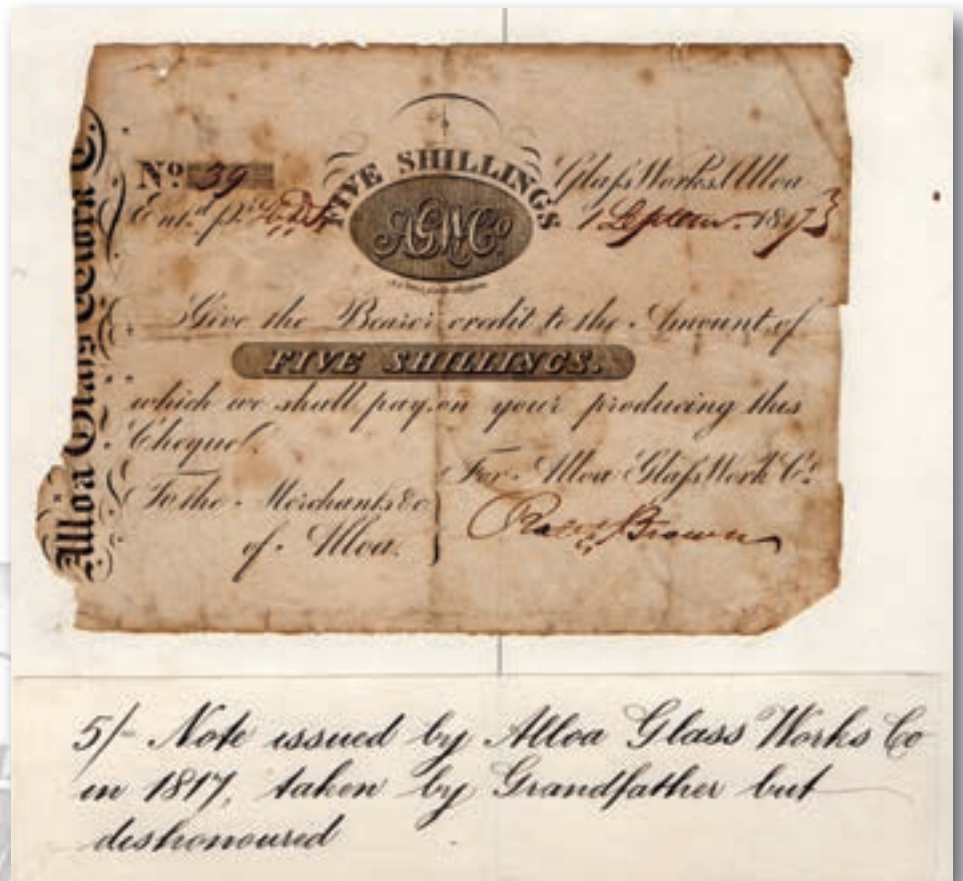 Alloa Glass Work Co.
FIVE SHILLINGS.
No 39 Glaſs Works Alloa
Entd. pr. 1 Septem. 1817
AGWCo
Give the Bearer credit to the Amount of
FIVE SHILLINGS.
which we shall pay on your producing this
Cheque.
To the Merchants &c
of Alloa.
For Alloa Glaſs Work Co.
Brown
5/- Note issued by Alloa Glass Works Co
in 1817, taken by Grandfather but
dishonoured